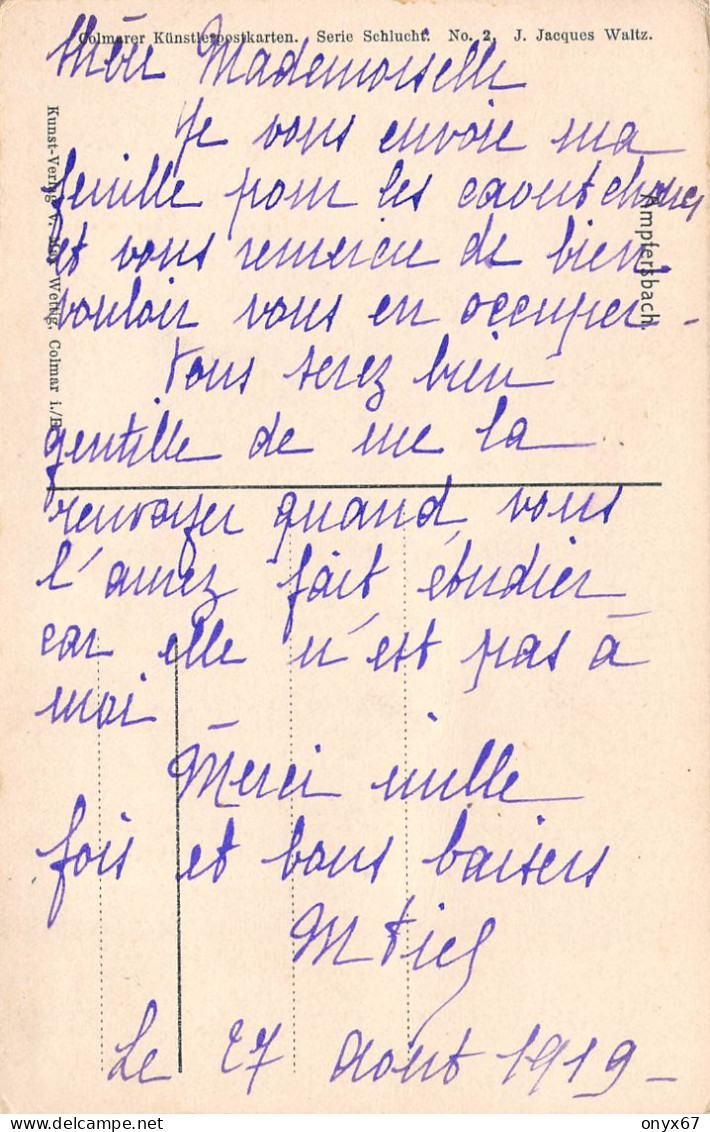 Colmarer Künstlerpostkarten. Serie Schlucht. No. 2, J. Jacques Waltz.
Mademoiselle
Je vous envoie ma
feuille pour les caoutchoucs
et vous remercie de bien
vouloir vous en occuper -
Vous serez bien
gentille de me la
renvoyer quand vous
l'aurez fait étudier
car elle n'est pas à
moi
Merci mille
fois et bons baisers
Le 27 Aout 1919 -
Kunst-Verlag v. Wettig, Colmar i./E.
Ampfersbach.
onyx67